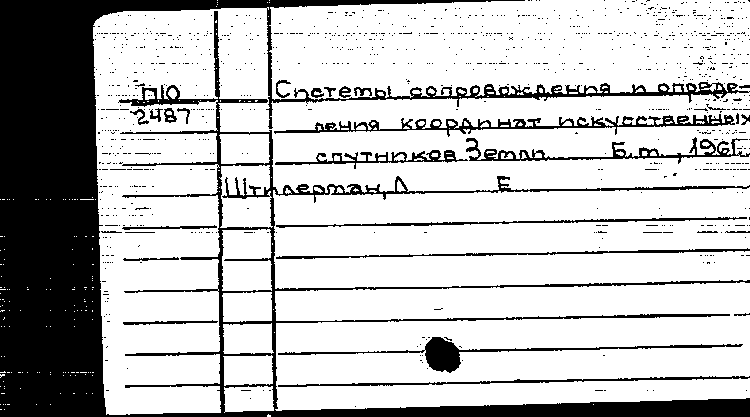 П10
2487
Системы сопровождения и опреде-
ления координат искусственных
спутников Земли Б.м., 1961.
Штилерман, Л Е